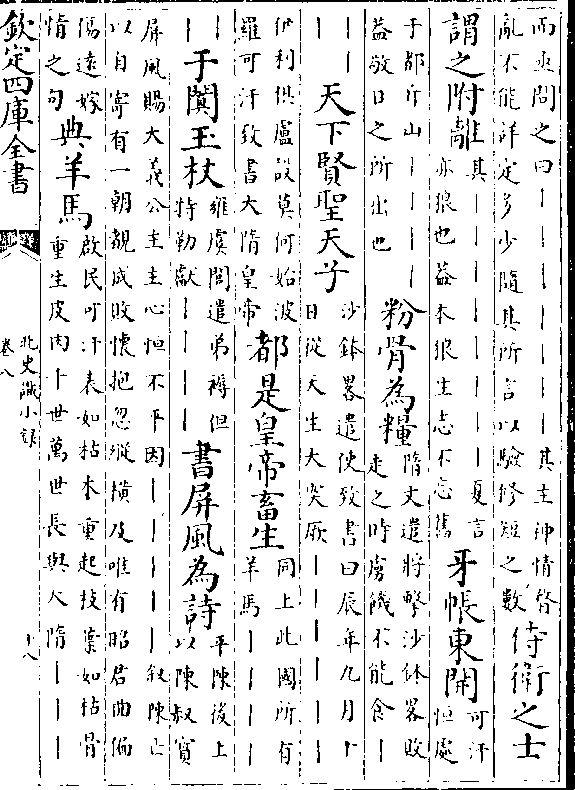 而亟問之曰｜｜｜｜｜｜｜其主神情瞀
亂不能詳定多少隨其所言以驗修短之數
侍衛之士
謂之附離
其｜｜｜｜｜｜｜夏言
亦狼也蓋本狼生志不忘舊
牙帳東開
可汗
恒處
于都斤山｜｜｜｜
益敬日之所出也
粉骨為糧
隋文遣將擊沙鉢畧敗
走之時虜饑不能食｜
｜｜
｜｜
天下賢聖天子
沙鉢畧遣使致書曰辰年九月十
日從天生大突厥｜｜｜｜｜｜
伊利俱盧設莫何始波
羅可汗致書大隋皇帝
都是皇帝畜生
同上此國所有
羊馬｜｜｜｜
｜｜
｜
于闐玉杖
雍虞閭遣弟褥但
特勒獻｜｜｜｜
書屏風為詩
平陳後上
以陳叔寳
屏風賜大義公主主心恒不平因｜｜｜｜｜叙陳亡
以自寄有一朝覩成敗懷抱忽縱横及唯有昭君曲偏
傷遠嫁
情之句
典羊馬
啟民可汗表如枯木重起枝葉如枯骨
重生皮肉千世萬世長與大隋｜｜｜
欽定四庫全書
北史識小錄
卷八
十八